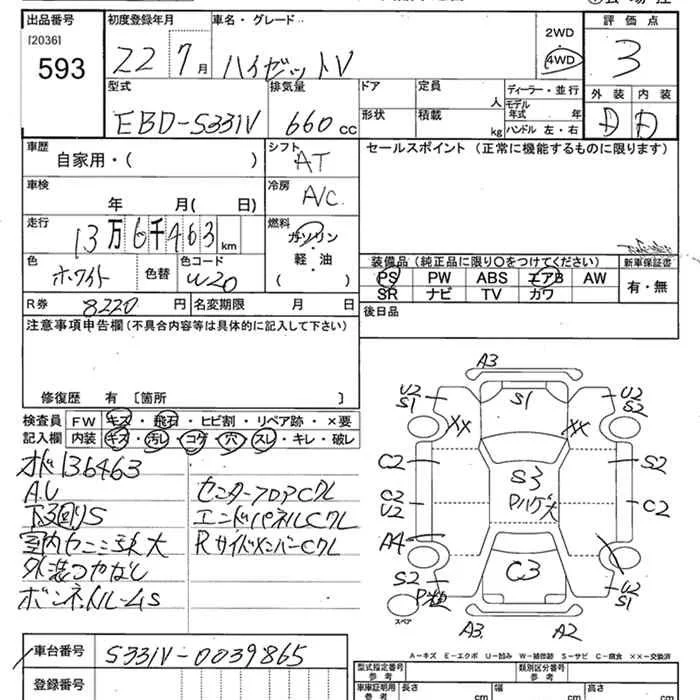 出品番号 初度登録年月 車名・グレード 2WD ・ 4WD 評価点
[2036]
593 22 7月 ハイゼットV 3
型式 排気量 ドア 定員 人 ディーラー・並行 外装 内装
EBD-S331V 660cc 形状 積載 kg モデル年式 年 ハンドル 左・右 D D
車歴 自家用・( ) シフト AT セールスポイント (正常に機能するものに限ります)
車検 年 月( 日) 冷房 A/C
走行 13万6千463km 燃料 ガソリン・軽油 ( )
色 ホワイト 色替 色コード W20
装備品 (純正品に限り〇をつけてください) 新車保証書
PS PW ABS エアB AW 有・無
SR ナビ TV カワ
R券 8220円 名変期限 月 日 後日品
注意事項申告欄 (不具合内容等は具体的に記入して下さい)
修復歴 有 〔箇所 〕
検査員記入欄 FW キズ・飛石・ヒビ割・リペア跡・×要
内装 キズ・汚レ・コゲ・穴・スレ・キレ・破レ
オド136463
A.U
下回りS
外装つやなし
センターフロアCクレ
エンドパネルCクレ
RサイドメンバーCクレ
A3
U2 S1 S1 U2 S2
XX XX
C2 S3 S2
C2 U2 C2
A4
S2 C3 U2 S1
スペア
A3 A2
A-キズ E-エクボ U-凹み W-補修跡 S-サビ C-腐食 ××-交換済
車台番号 S331V-0039865
登録番号
型式指定番号 参考 類別区分番号 参考
車庫証明用 参考 長さ cm 幅 cm 高さ cm